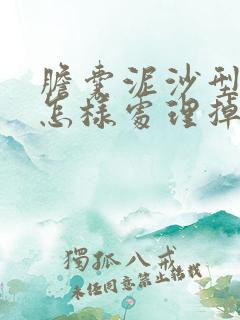 膽囊泥沙型
怎樣處理掉
獨孤八戒
未经同意禁止转载